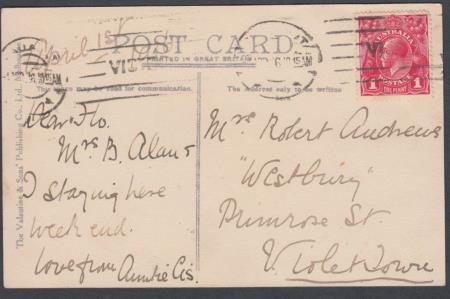 April 1st
POST CARD
PRINTED IN GREAT BRITAIN
This space may be used for communication.
The Address only to be written
The Valentine & Sons' Publishing Co., Ltd. Melbourne
AUSTRALIA
1 1
ONE PENNY
VIC
10 15AM
Dear Flo.
Mrs B. Alan &
I staying here
week end.
love from Auntie Cis.
Mrs Robert Andrews
"Westbury"
Primrose St.
Violet Town